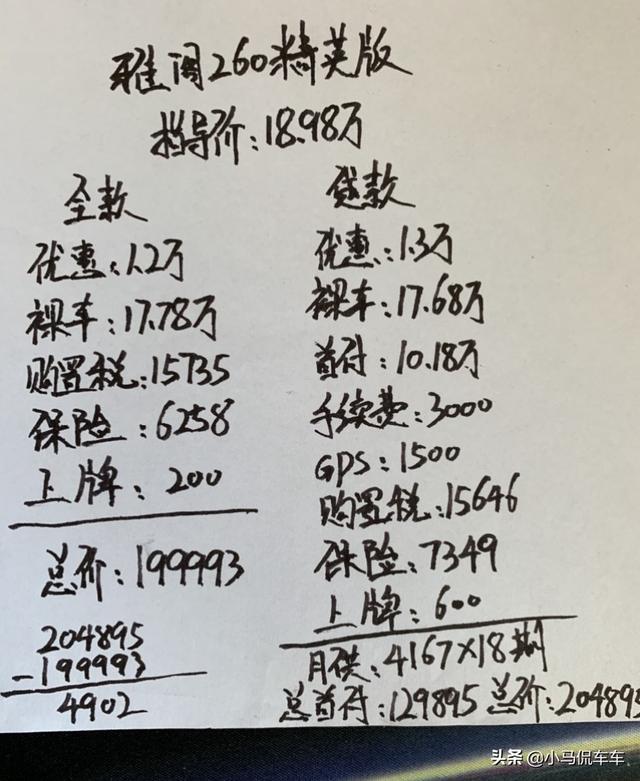 雅阁260精英版
指导价:18.98万
全款
优惠:1.2万
裸车:17.78万
购置税:15735
保险:6258
上牌:200
总价:199993
204895
-199993
4902
贷款
优惠:1.3万
裸车:17.68万
首付:10.18万
手续费:3000
GPS:1500
购置税:15646
保险:7349
上牌:600
月供:4167×18期
总首付:129895 总价:204895
头条 @小马侃车车